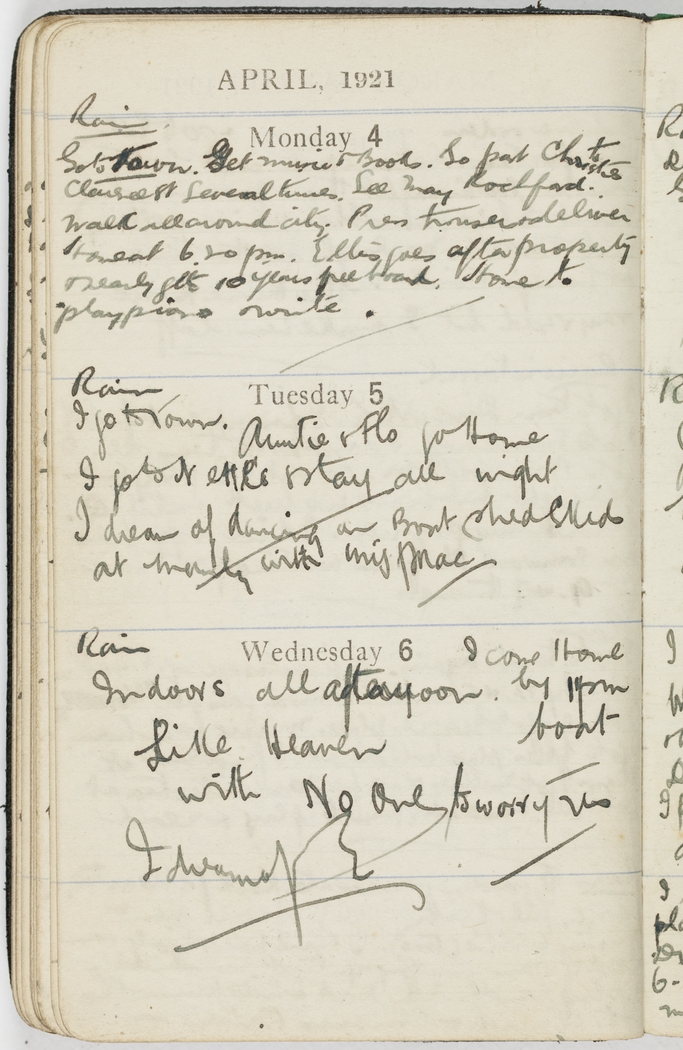 APRIL, 1921
Rain
Monday 4
Go to Town. Get music & Books. Go past
Clarence St Several times. See May Rochford.
Walk all around city. Press trousers & deliver
to neat 6.20 pm. Ellis goes after property
& nearly gets 10 years free board. Home to
play piano & write.
Rain
Tuesday 5
I go to Town.
Auntie & Flo go Home
I go to Nettle's & stay all night
I dream of dancing on Boat Shed Skids
at Manly with Miss Mac
Rain
Wednesday 6
I come Home
by 11 pm
boat
Indoors all afternoon.
Like Heaven
with No One to worry us
I dream of E